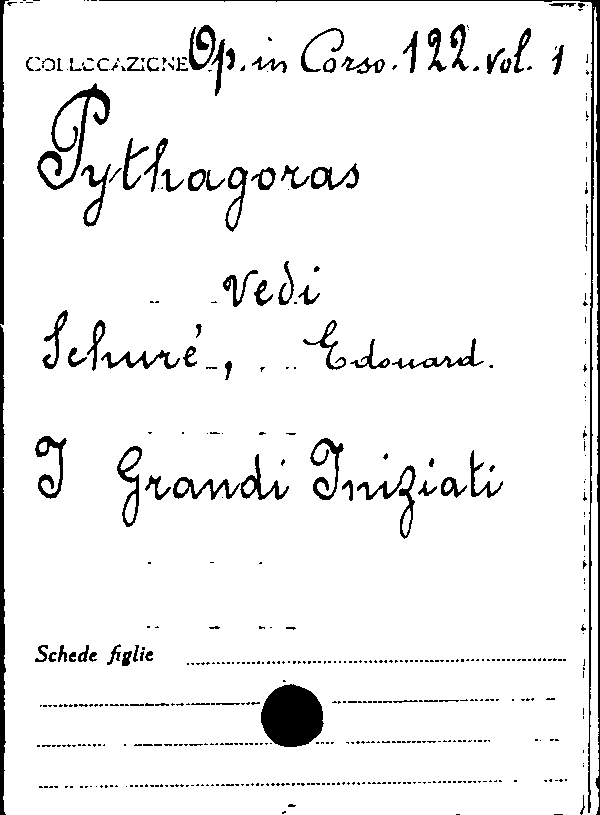 COLLOCAZIONE Op. in Corso. 122. vol. 1
Pythagoras
vedi
Schuré, Edouard.
I Grandi Iniziati
Schede figlie